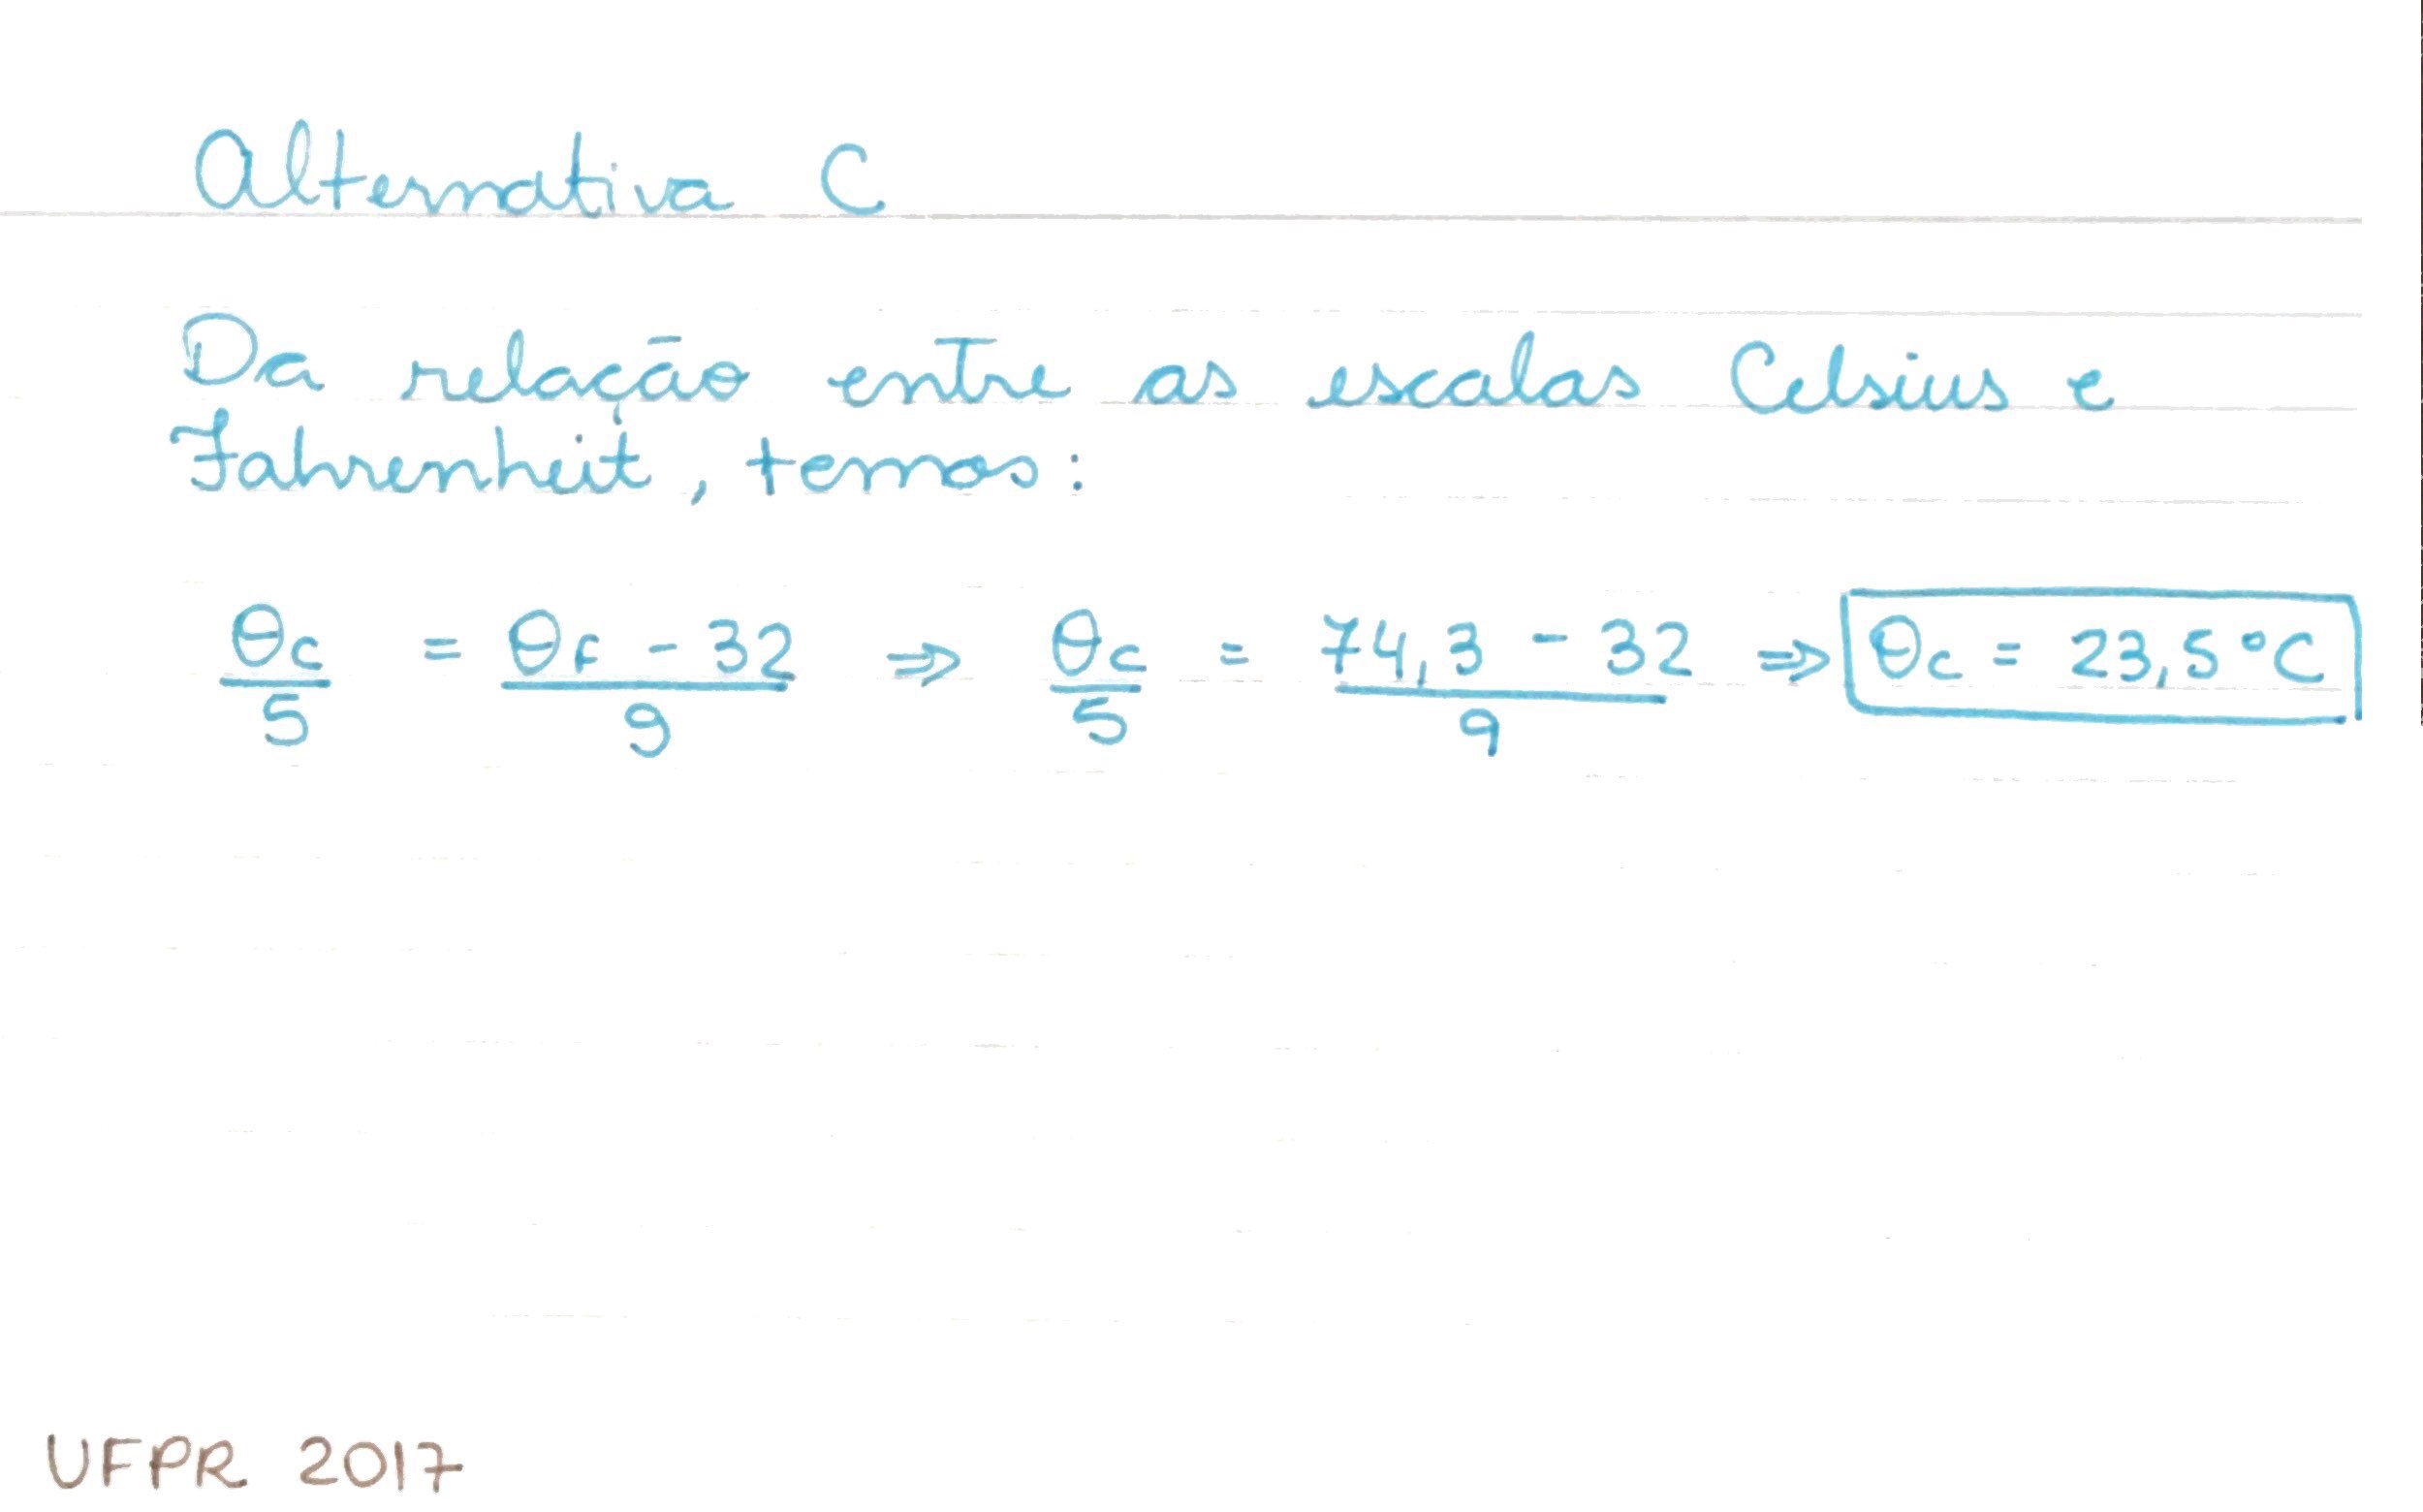 Alternativa C
Da relação entre as escalas Celsius e
Fahrenheit, temos:
θc/5 = θF - 32/9 ⇒ θc/5 = 74,3 - 32/9 ⇒ θc = 23,5°C
UFPR 2017